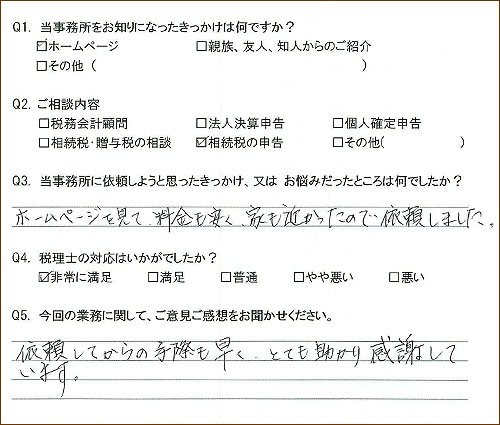 Q1. 当事務所をお知りになったきっかけは何ですか?
☑ホームページ □親族、友人、知人からのご紹介
□その他 ( )
Q2. ご相談内容
□税務会計顧問 □法人決算申告 □個人確定申告
□相続税・贈与税の相談 ☑相続税の申告 □その他( )
Q3. 当事務所に依頼しようと思ったきっかけ、又は お悩みだったところは何でしたか?
ホームページを見て、料金も安く、家も近かったので依頼しました。
Q4. 税理士の対応はいかがでしたか?
☑非常に満足 □満足 □普通 □やや悪い □悪い
Q5. 今回の業務に関して、ご意見ご感想をお聞かせください。
依頼してからの手際も早く、とても助かり感謝して
います。